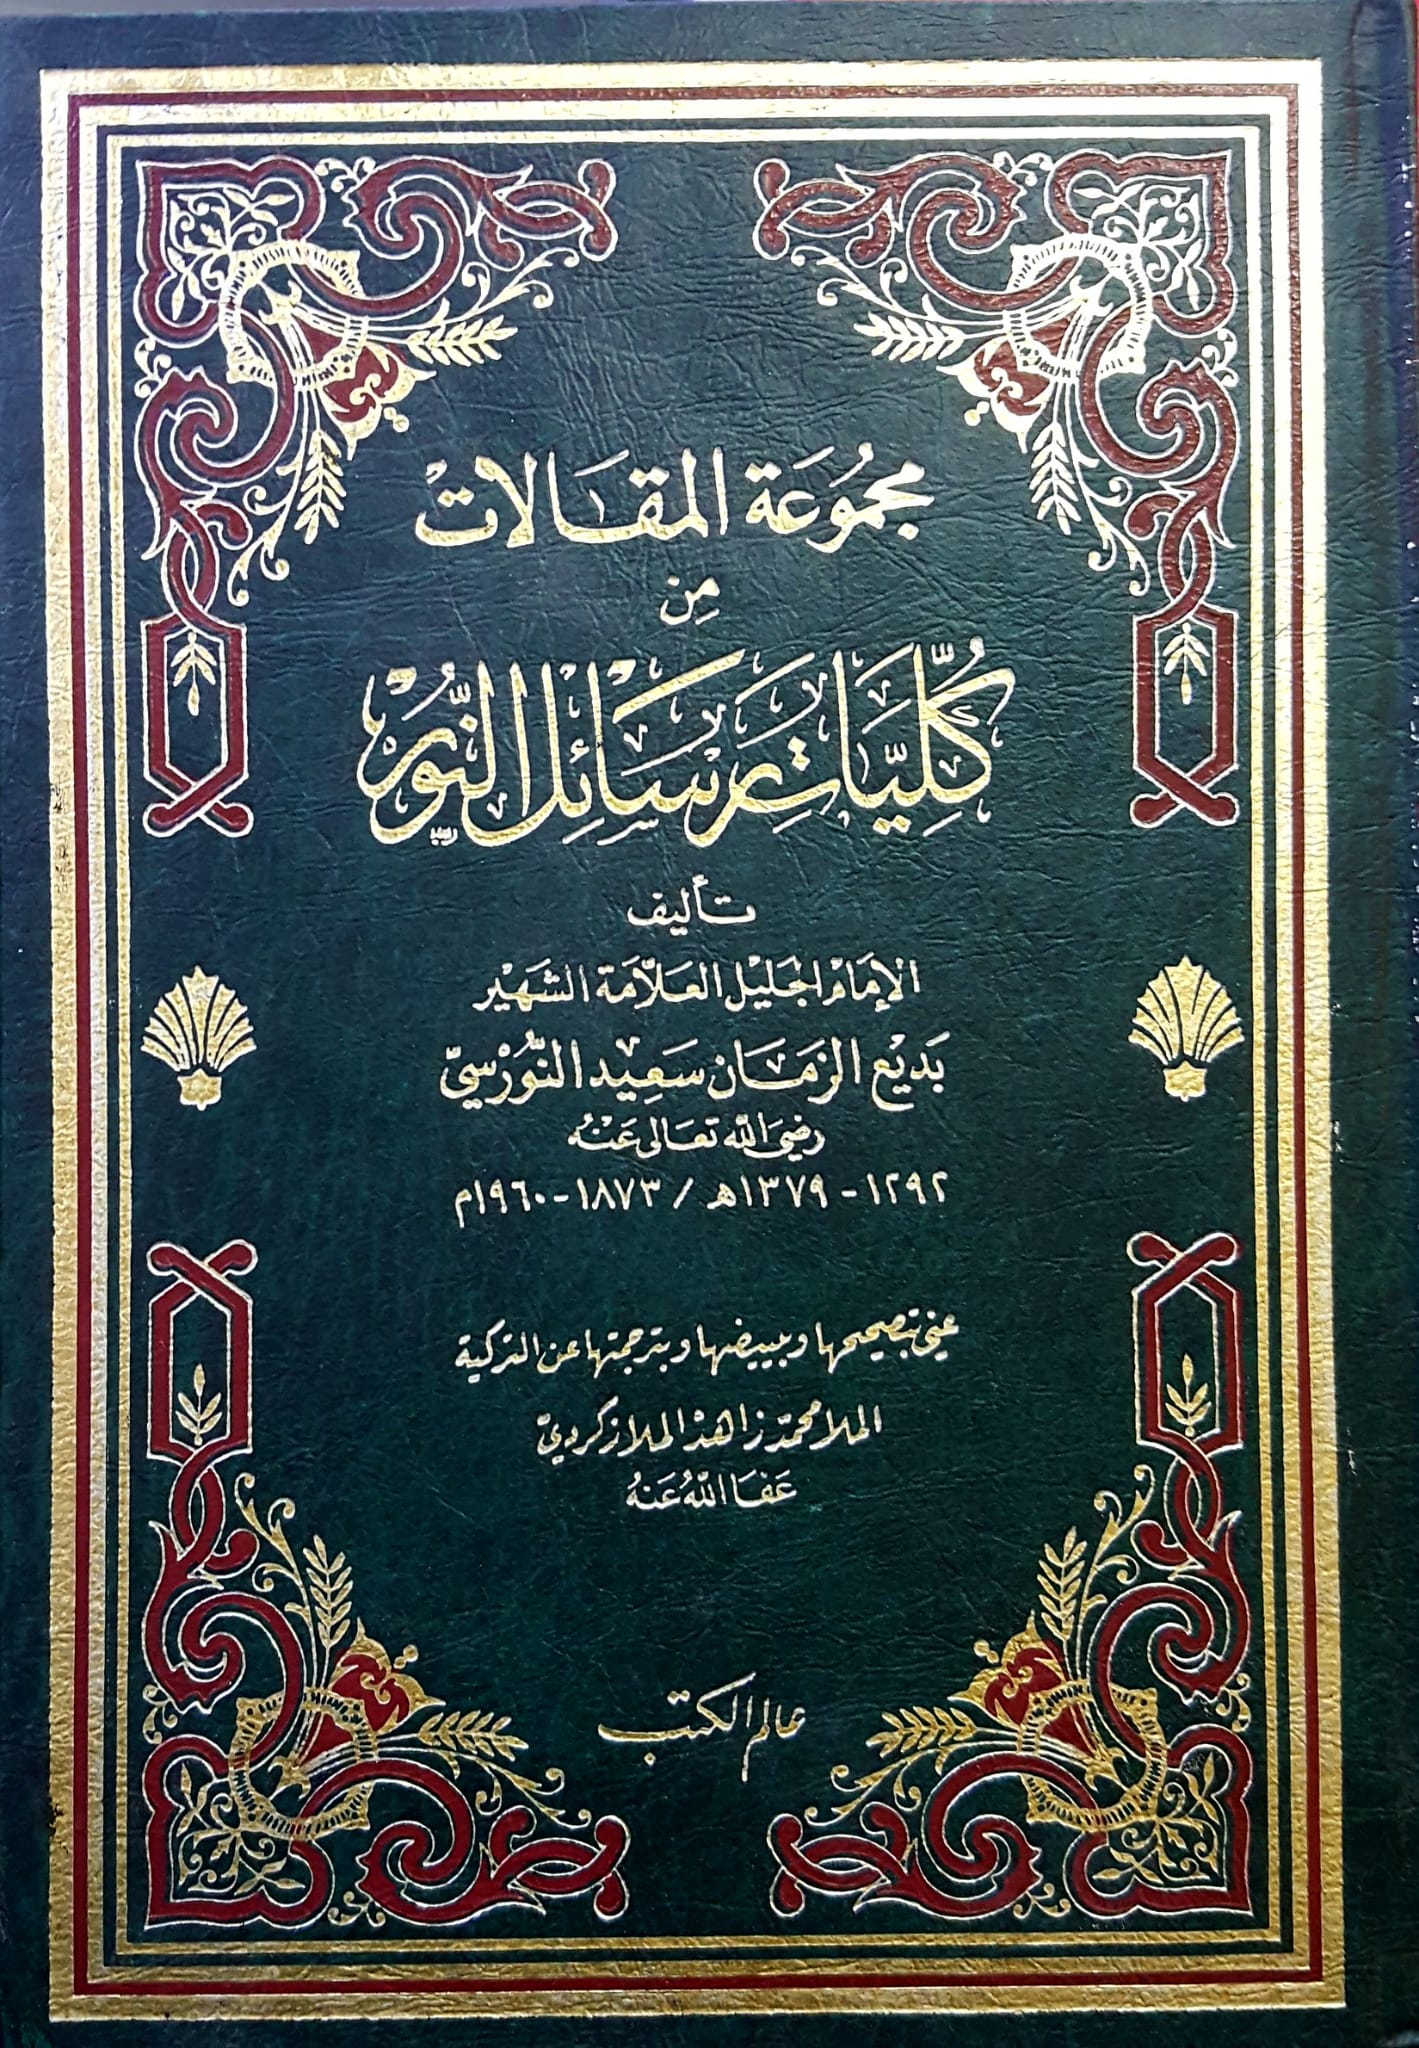 مجمُوعَة المقَالات
مِن
كُلِّيَّاتِ رَسَائِل النُّور
تأليف
الإمَامْ الجَليْل العَلاّمَة الشَهيْر
بَديْع الزمَان سَعِيد النُّورْسيّ
رضيَ الله تعَالى عَنْهُ
١٢٩٢- ١٣٧٩هـ / ١٨٧٣-١٩٦٠م
عني بتصحيحها وتبييضها وبترجمتها عن التركية
الملا محمّد زاهدْ الملازكرديّ
عَفَا اللهُ عَنهُ
عالم الكتب